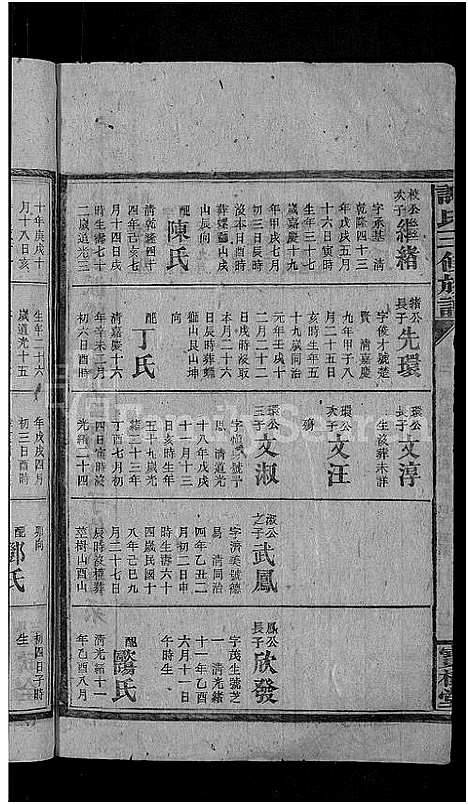 氏三修族譜
校公次子繼緒
字承基清
乾隆四十三
年戊戌五月
十六日寅時
生年三十七
歲嘉慶十九
年甲戌七月
初三日辰時
歿本日酉時
山辰向
配陳氏
清乾隆四十
月十四日戌
時生壽七十
二歲道光三
十年庚戌十
月十八日亥
緒公長子先環
字俊才號楚
賢清嘉慶
九年甲子八
月二十五日
亥時生年五
十九歲同治
元年壬戌十
二月二十二
日戌時歿取
本月二十六
日辰時葬
獅山艮山坤
向
配丁氏
清嘉慶十六
年辛未三月
初六日酉時
生年二十六
歲道光十五
環公長子文淳
生歿葬未詳
環公次子文汪
殤
環公三子文淑
號予
恩清道光
十八年戊戌
十一月十三
日亥時生年
五十九歲光
緒二十三年
丁酉七月初
四日寅時歿
光緒二十四
年戊戌四月
初三日酉時
淑公之子武鳳
字濟美號德
易清同治
四年乙丑二
月初二日申
時生壽六十
四歲民國十
八年己巳九
月二十七日
辰時歿葬
樹山酉山
卯向
配鄧氏
鳳公長子欣發
字茂生號芝
一清光緒
十一年乙酉
六月十一日
午時生
配歐陽氏
清光緒十一
年乙酉八月
初四日子時
生